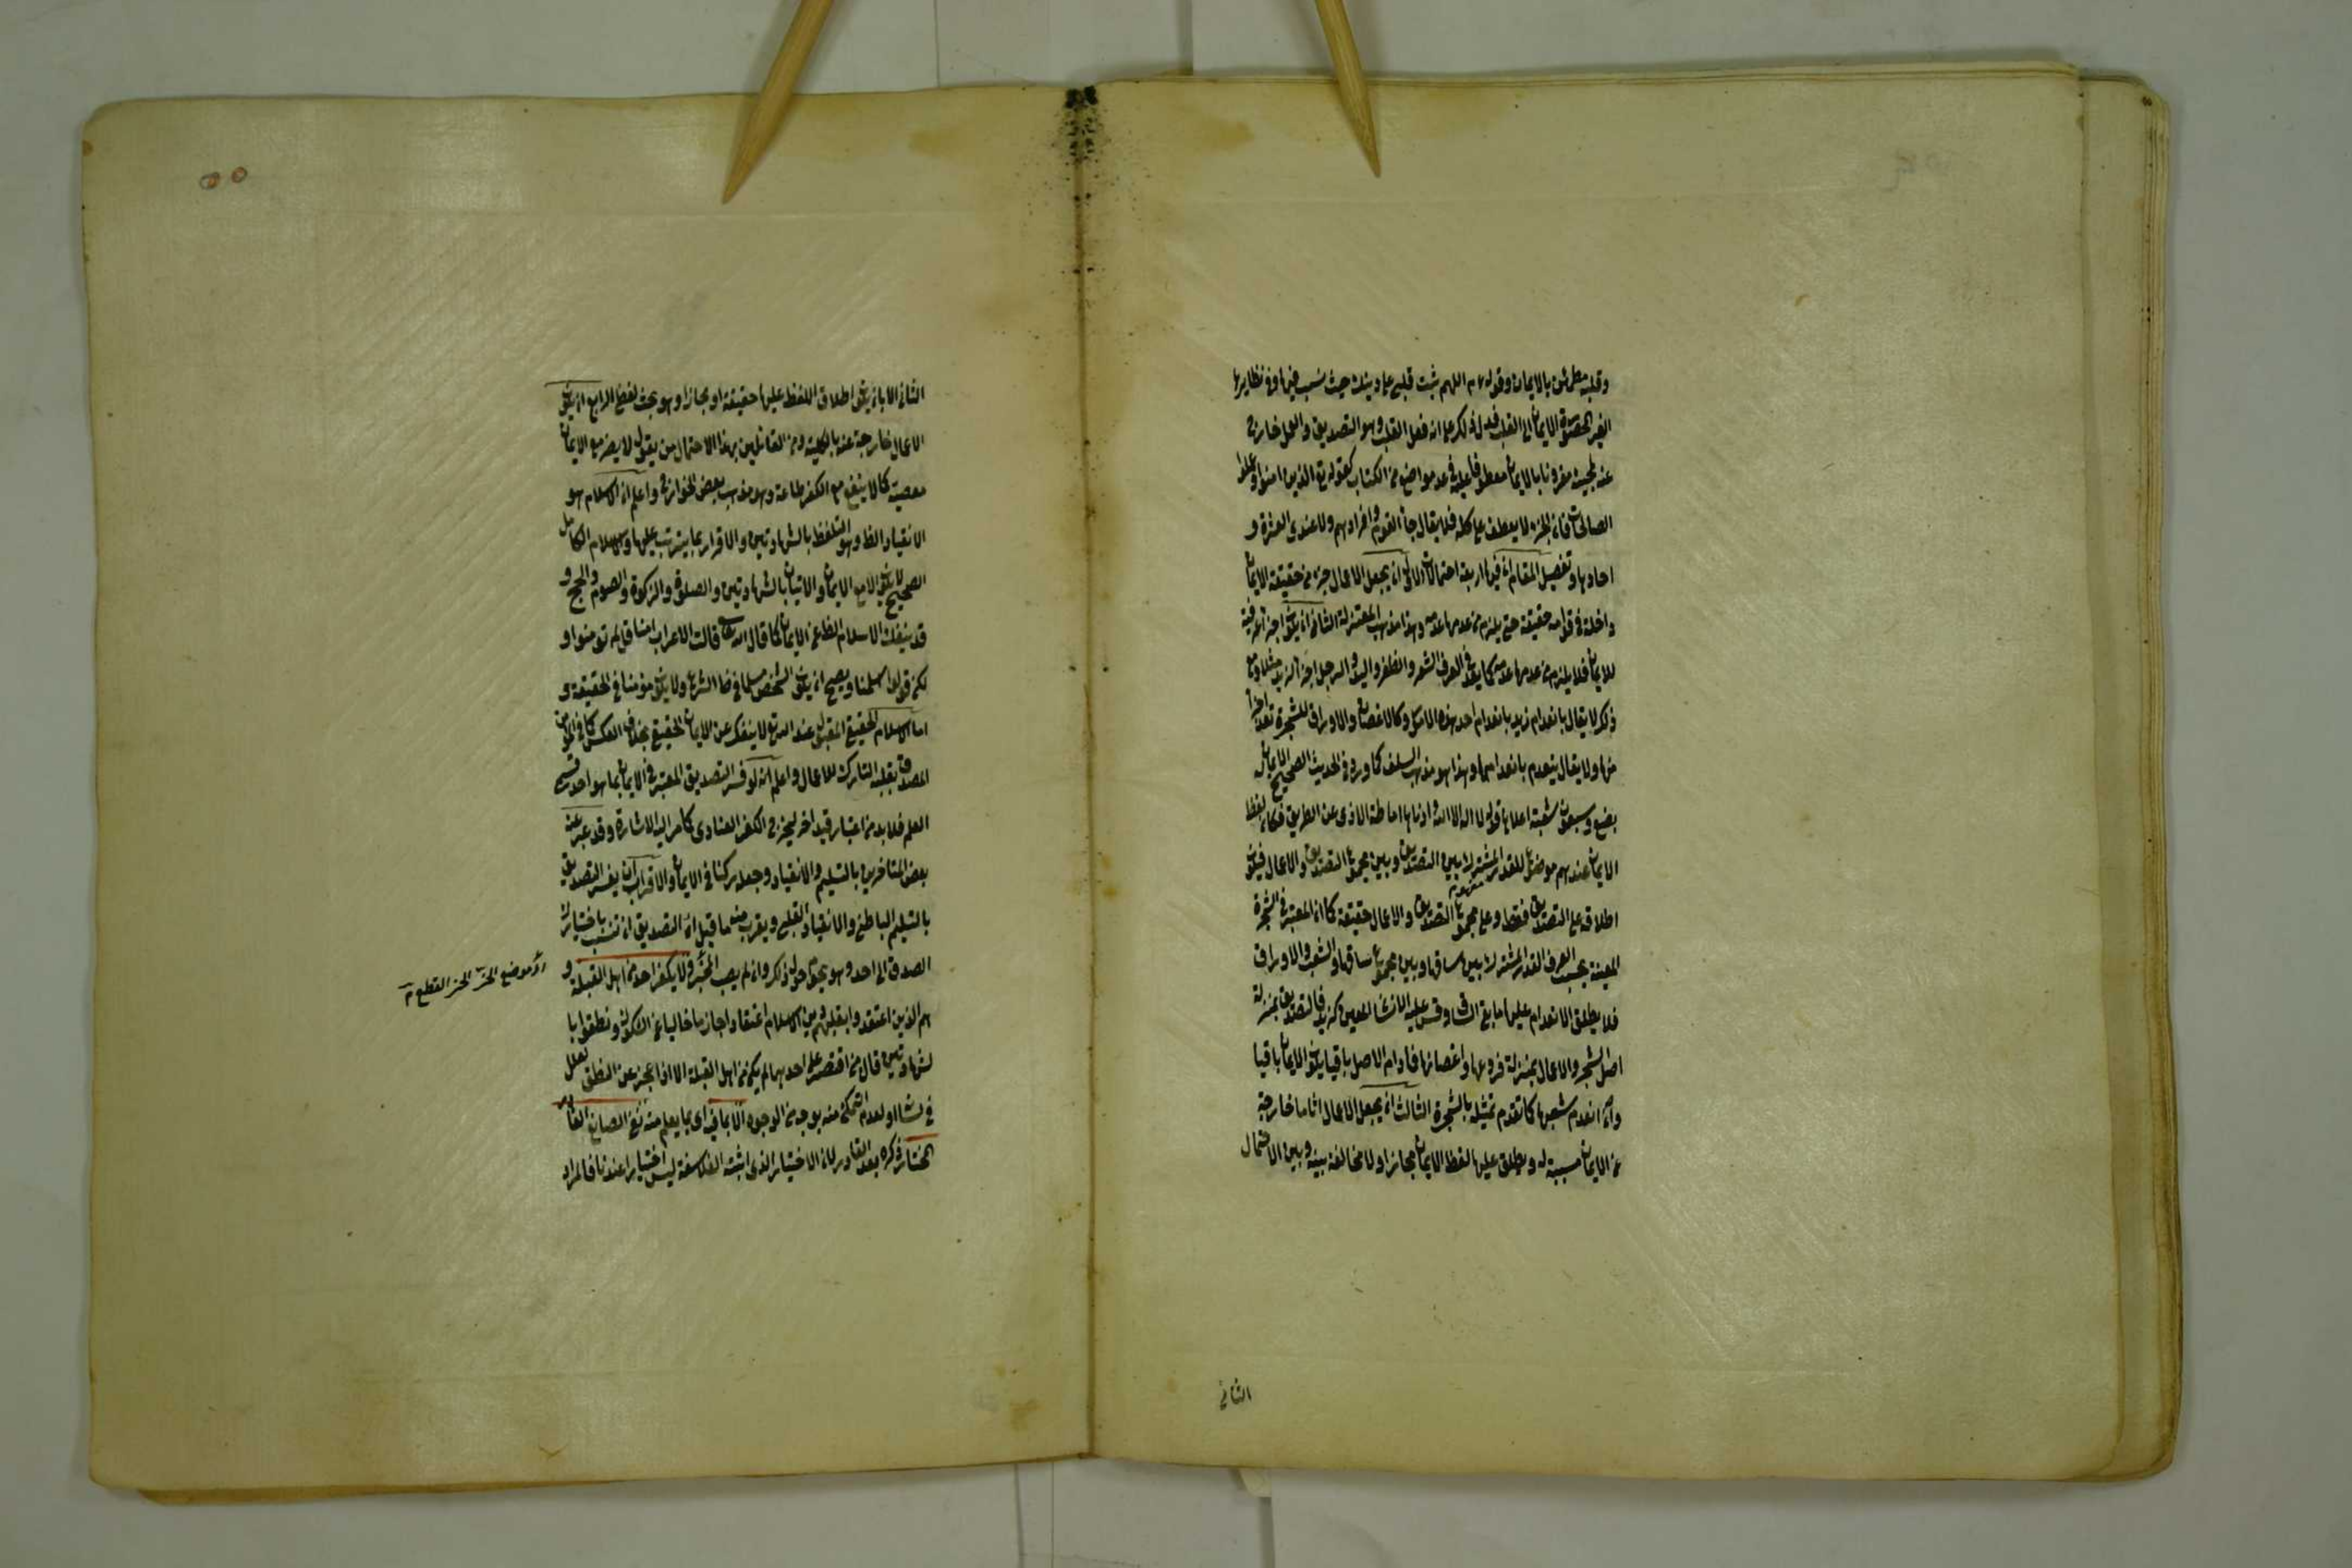 وقلبه مطمئن بالايمان وقوله ءم اللهم ثبت قلبي على دينك حيث نسب فيها وفي نظايرها
الغير المحصورة الايمان الى القلب فدل ذلك على انه فعل القلب وهو التصديق والعمل خارج
عنه لمجيئه مقرونا بالايمان معطوفا عليه في عدة مواضع من الكتاب كقوله تع الذين امنوا وعملوا
الصالحات فان الجزء لا يعطف على كله فلا يقال جاء القوم وافرادهم ولا عندي العشرة و
احادها وتفصيل المقام ان فيها اربعة احتمالات الاول ان يجعل الاعمال جزء من حقيقة الايمان
داخلة في قوام حقيقته حتى يلزم من عدمها عدمه وهذا مذهب المعتزلة الثاني ان يكون اجزاء عرفية
للايمان فلا يلزم من عدمها عدمه كما يعد في العرف الشعر والظفر واليد والرجل اجزاء لزيد مثلا ومع
ذلك لا يقال بانعدام زيد بانعدام احد هذه الامور وكالاغصان والاوراق للشجرة تعد اجزاء
منها ولا يقال ينعدم بانعدامها وهذا هو مذهب السلف كما ورد في الحديث الصحيح الايمان
بضع وسبعون شعبة اعلاها قول لا اله الا الله وادناها اماطة الاذى عن الطريق فكان لفظ
الايمان عندهم موضوعا للقدر المشترك بين التصديق وبين مجموع التصديق والاعمال فيكون
اطلاقه على التصديق فقط وعلى مجموع التصديق والاعمال حقيقة كما ان المعتبر في الشجرة
المعينة بحسب العرف القدر المشترك بين ساقها وبين مجموع ساقها والشعب والاوراق
فلا يطلق الانعدام عليها ما بقي الساق وقس عليه الانسان المعين كزيد فالتصديق بمنزلة
اصل الشجر والاعمال بمنزلة فروعها واغصانها فما دام الاصل باقيا يكون الايمان باقيا
وان انعدم شعبها كما تقدم تمثيله بالشجرة الثالث ان يجعل الاعمال اثارا خارجة
عن الايمان مسببة له ويطلق عليها لفظ الايمان مجازا ولا مخالفة بينه وبين الاحتمال
الثاني
الثاني الا بان يكون اطلاق اللفظ عليها حقيقة او مجازا وهو بحث لفظي الرابع ان يكون
الاعمال خارجة عنه بالكلية ومن القائلين بهذا الاحتمال من يقول لا يضر مع الايمان
معصية كما لا ينفع مع الكفر طاعة وهو مذهب بعض الخوارج واعلم ان الاسلام هو
الانقياد الظ وهو التلفظ بالشهادتين والاقرار بما يترتب عليها والاسلام الكامل
الصحيح لا يكون الا مع الايمان والاتيان بالشهادتين والصلوة والزكوة والصوم والحج و
قد ينفك الاسلام الظ عن الايمان كما قال الله تع قالت الاعراب امنا قل لم تومنوا و
لكن قولوا اسلمنا ويصح ان يكون الشخص مسلما في ظاهر الشرع ولا يكون مؤمنا في الحقيقة و
اما الاسلام الحقيقي المقبول عند الله تع لا ينفك عن الايمان الحقيقي بخلاف العكس كما في المؤمن
المصدق بقلبه التارك للاعمال واعلم انه لو فسر التصديق المعتبر في الايمان بما هو احد قسمي
العلم فلا بد من اعتبار قيد اخر ليخرج الكفر العنادي كما مر اليه الاشارة وقد عبر عنه
بعض المتاخرين بالتسليم والانقياد وجعله ركنا في الايمان والاقرب ان يفسر التصديق
بالتسليم الباطني والانقياد القلبي ويقرب منه ما قيل ان التصديق ان تنسب باختيارك
الصدق الى احد وهو يحوم حول ذلك وان لم يصب المحز ولا يكفر احد من اهل القبلة و
هم الذين اعتقدوا بقلبهم دين الاسلام اعتقادا جازما خاليا عن الشكوك ونطقوا با
لشهادتين قال من اقتصر على احدهما لم يكن من اهل القبلة الا اذا عجز عن النطق لعلل
في لسانه او لعدم التمكن منه بوجه من الوجوه الا بما فيه اي بما يعلم منه نفي الصانع القادر
المختار ذكره بعد القادر لان الاختيار الذي اثبته الفلاسفة ليس اختيارا عندنا فالمراد
موضع الحز الحز القطع